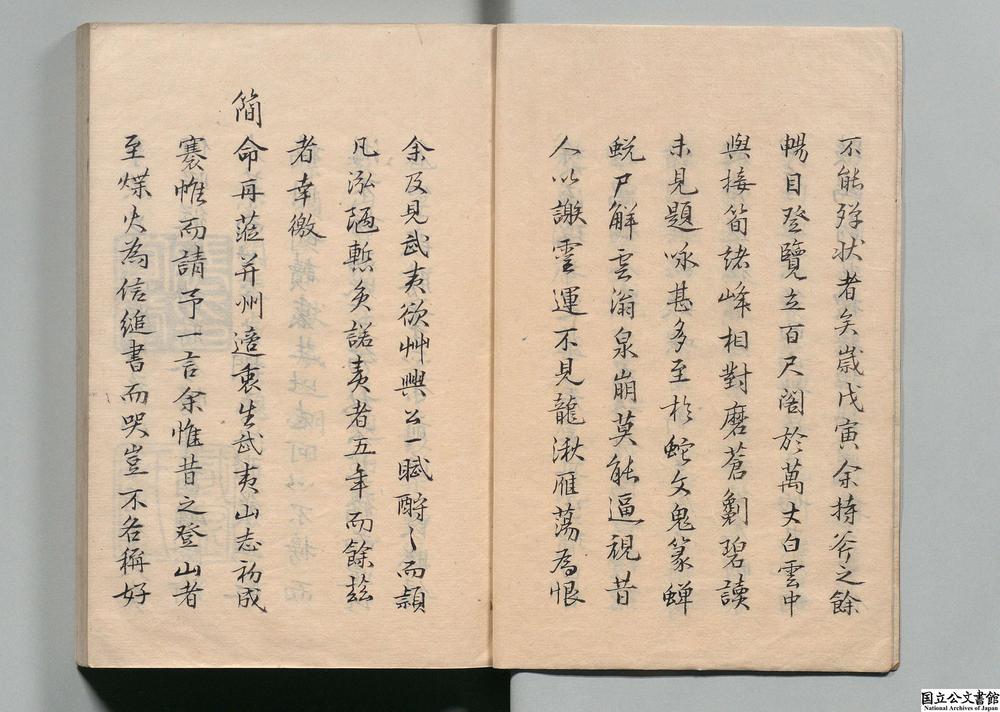 不能殫状者矣歳戊寅余持斧之餘
暢目登覽立百尺閣於萬丈白雲中
與接筍諸峰相對磨蒼劚碧讀
未見題咏甚多至於蛇文鬼篆蟬
蛻尸觧雲滃泉崩莫能逼視昔
人以謝靈運不見龍湫雁蕩為恨
余及見武夷欲艸興公一賦酹之而頴
凡泓陋慙負諾夷者五年而餘玆
者幸徼
簡命再蒞并州適衷生武夷山志初成
褰帷而請予一言余惟昔之登山者
至煤火為信縋書而哭豈不名稱好
国立公文書館
National Archives of Japan